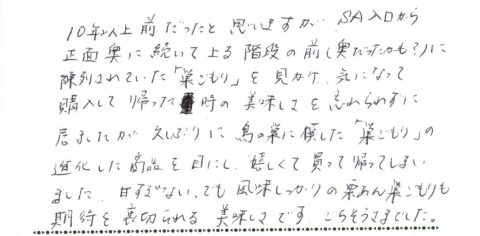 10年以上前だったと思いますが、SA入口から
正面奥に続いて上る階段の前(奥だったかも?)に
陳列されていた「巣ごもり」を見かけ、気になって
購入して帰った時の美味しさを忘れられずに
居ましたが久しぶりに鳥の巣に模した「巣ごもり」の
進化した商品を目にし、嬉しくて買って帰ってしまい
ました。甘すぎない、でも風味しっかりの栗あん巣ごもりも
期待を裏切られる美味しさです。ごちそうさまでした。